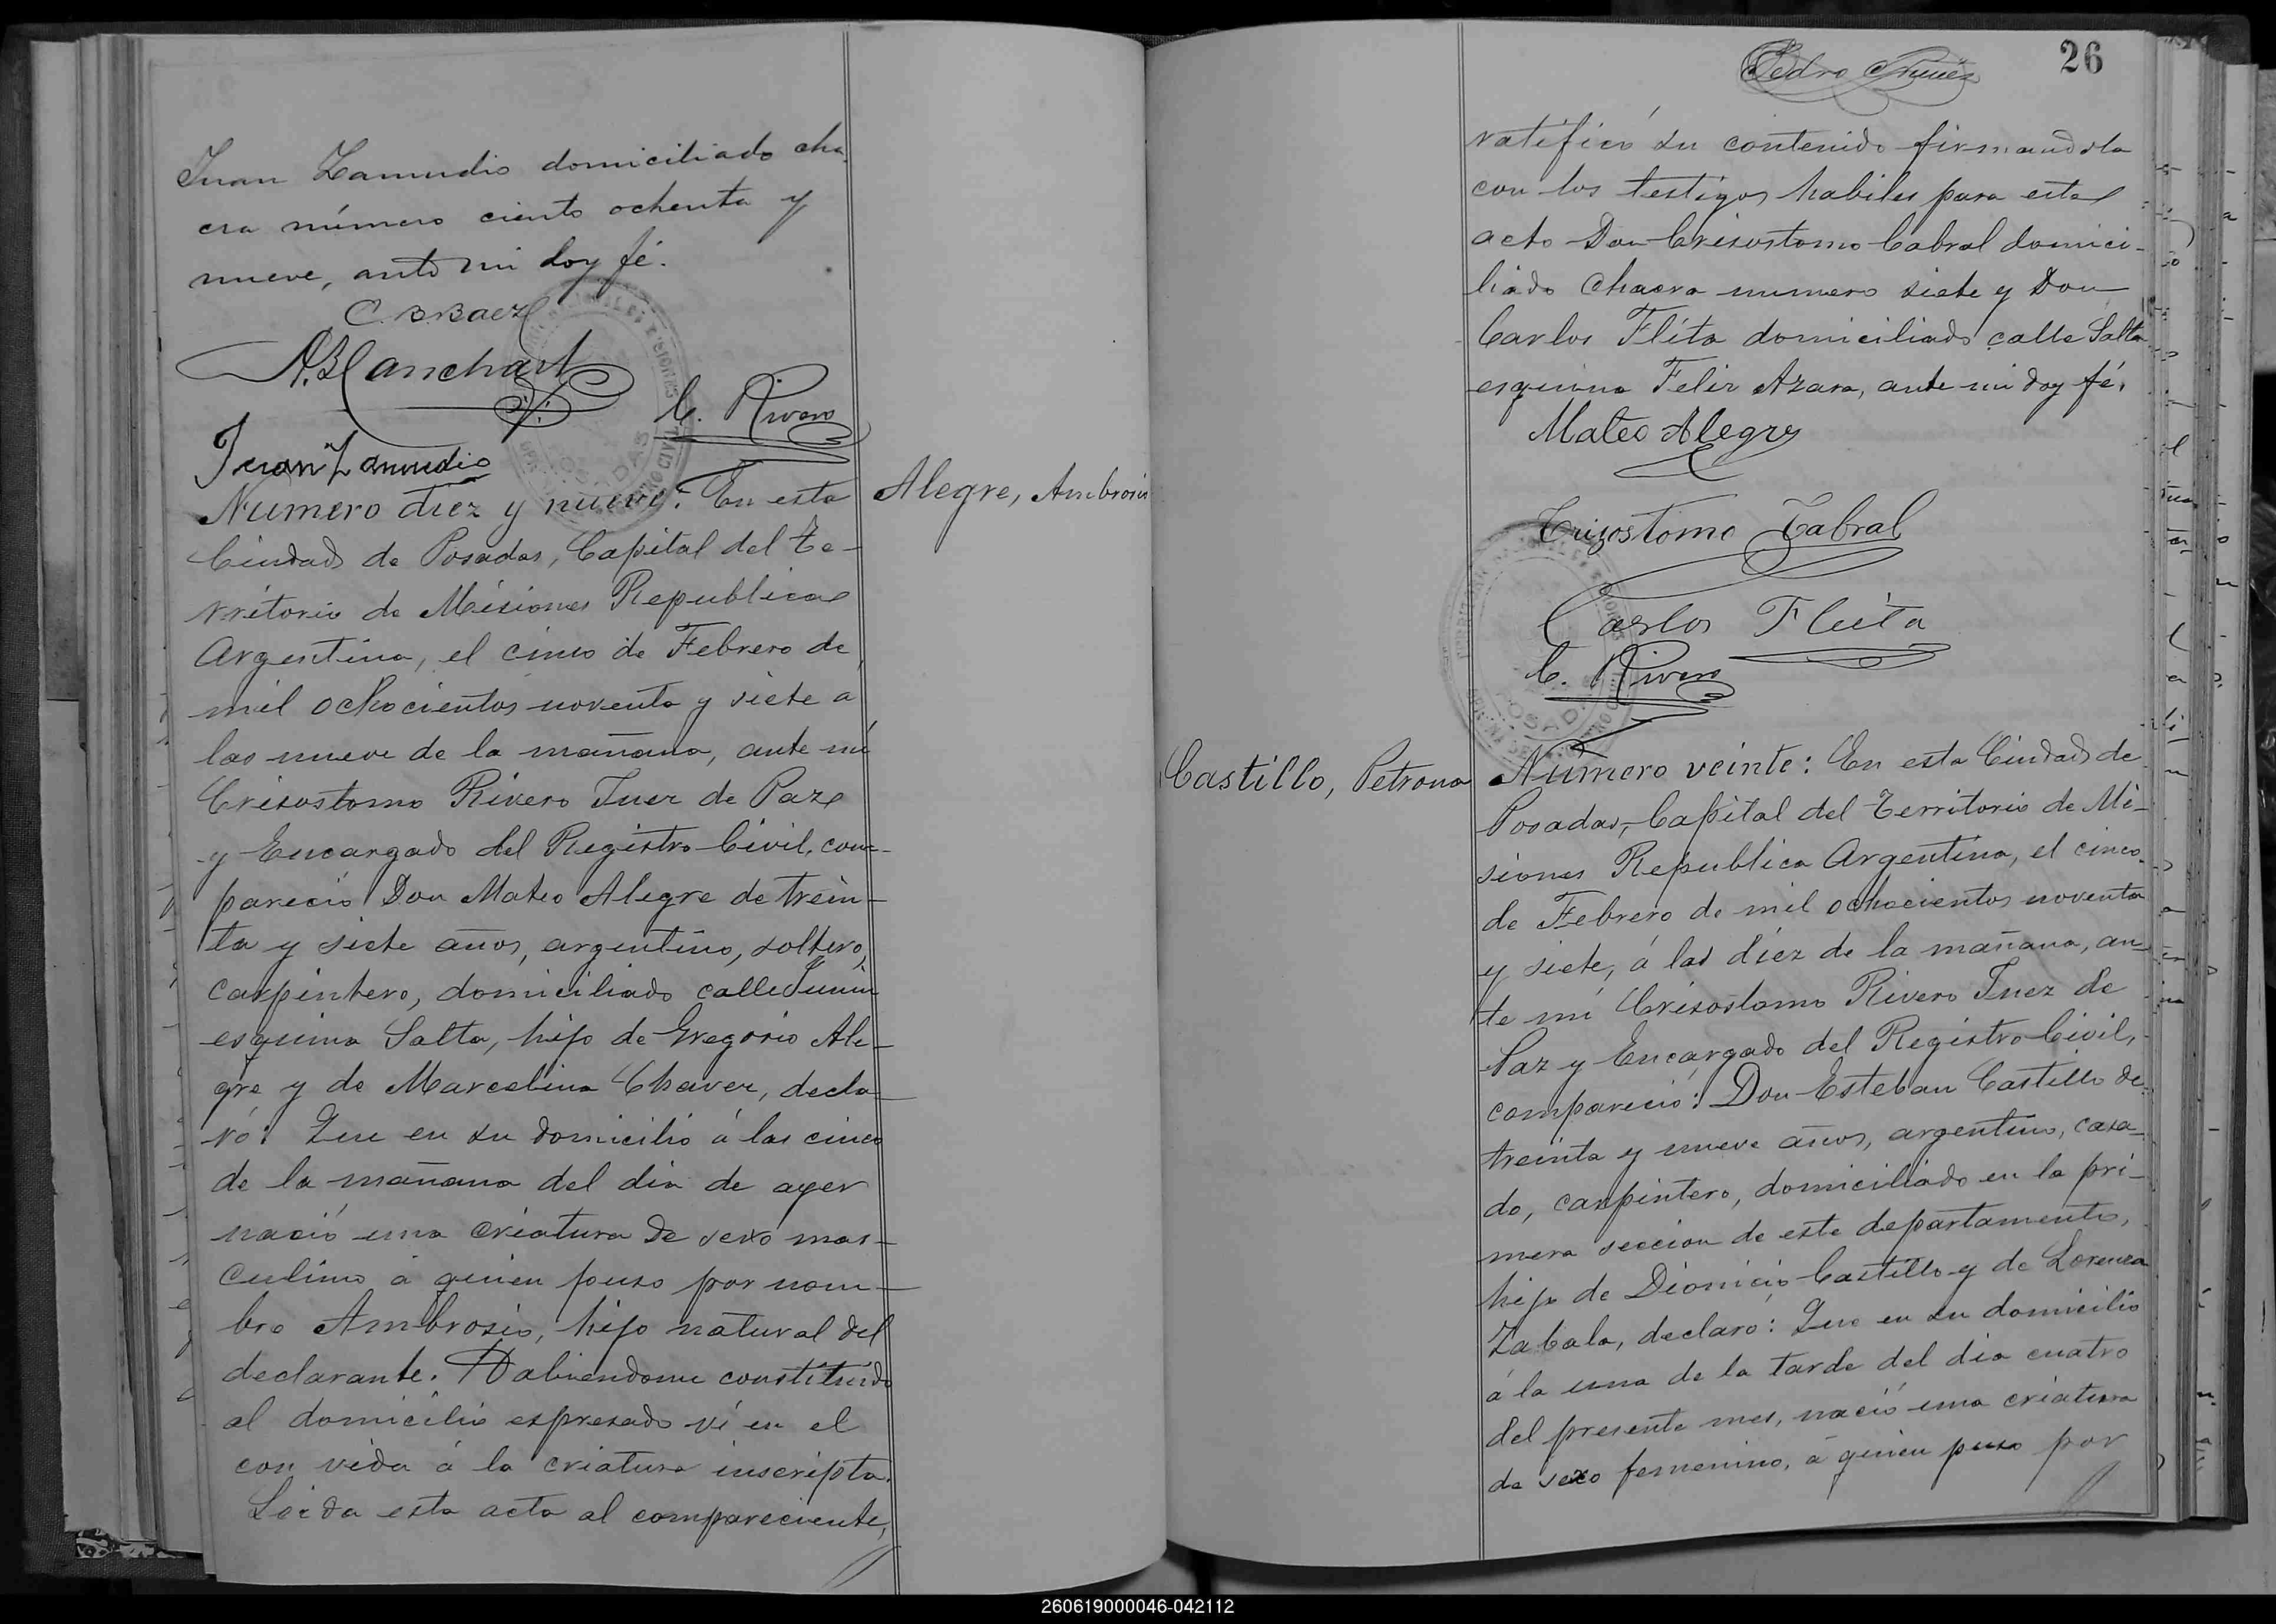 Juan Zamudio domiciliado cha
cra número ciento ochenta y
nueve, ante mi doy fé.
C. B. Baez
A. Blanchart
C. Rivero
Juan Zamudio
Numero diez y nueve: En esta
Alegre, Ambrosio
Ciudad de Posadas, Capital del Te-
rritorio de Misiones Republica
Argentina, el cinco de Febrero de
mil ochocientos noventa y siete a
las nueve de la mañana, ante mi
Crisostomo Rivero Juez de Paz
y Encargado del Registro Civil, com-
pareció Don Mateo Alegre de trein-
ta y siete años, argentino, soltero,
carpintero, domiciliado calle Junin
esquina Salta, hijo de Gregorio Ale-
gre y de Marcelina Chavez, decla-
ró: Que en su domicilio á las cinco
de la mañana del dia de ayer
nació una criatura de sexo mas-
culino á quien puso por nom-
bre Ambrosio, hijo natural del
declarante. Habiendome constituido
al domicilio espresado ví en el
con vida á la criatura inscripta.
Leida esta acta al compareciente,
26
Pedro Nuñez
ratificó su contenido firmandola
con los testigos habiles para este
acto Don Crisostomo Cabral domici-
liado Chacra numero siete y Don
Carlos Fleita domiciliado calle Salta
esquina Felix Azara, ante mi doy fé.
Mateo Alegre
Crizostomo Cabral
Carlos Fleita
C. Rivero
Castillo, Petrona
Número veinte: En esta Ciudad de
Posadas, Capital del Territorio de Mi-
siones Republica Argentina, el cinco
de Febrero de mil ochocientos noventa
y siete, á las diez de la mañana, an
te mí Crisostomo Rivero Juez de
Paz y Encargado del Registro Civil,
compareció: Don Esteban Castillo de
treinta y nueve años, argentino, casa-
do, carpintero, domiciliado en la pri-
mera seccion de este departamento,
hijo de Dionicio Castillo y de Lorenza
Zabala, declaró: Que en su domicilio
á la una de la tarde del dia cuatro
del presente mes, nació una criatura
de sexo femenino, á quien puso por
260619000046-042112